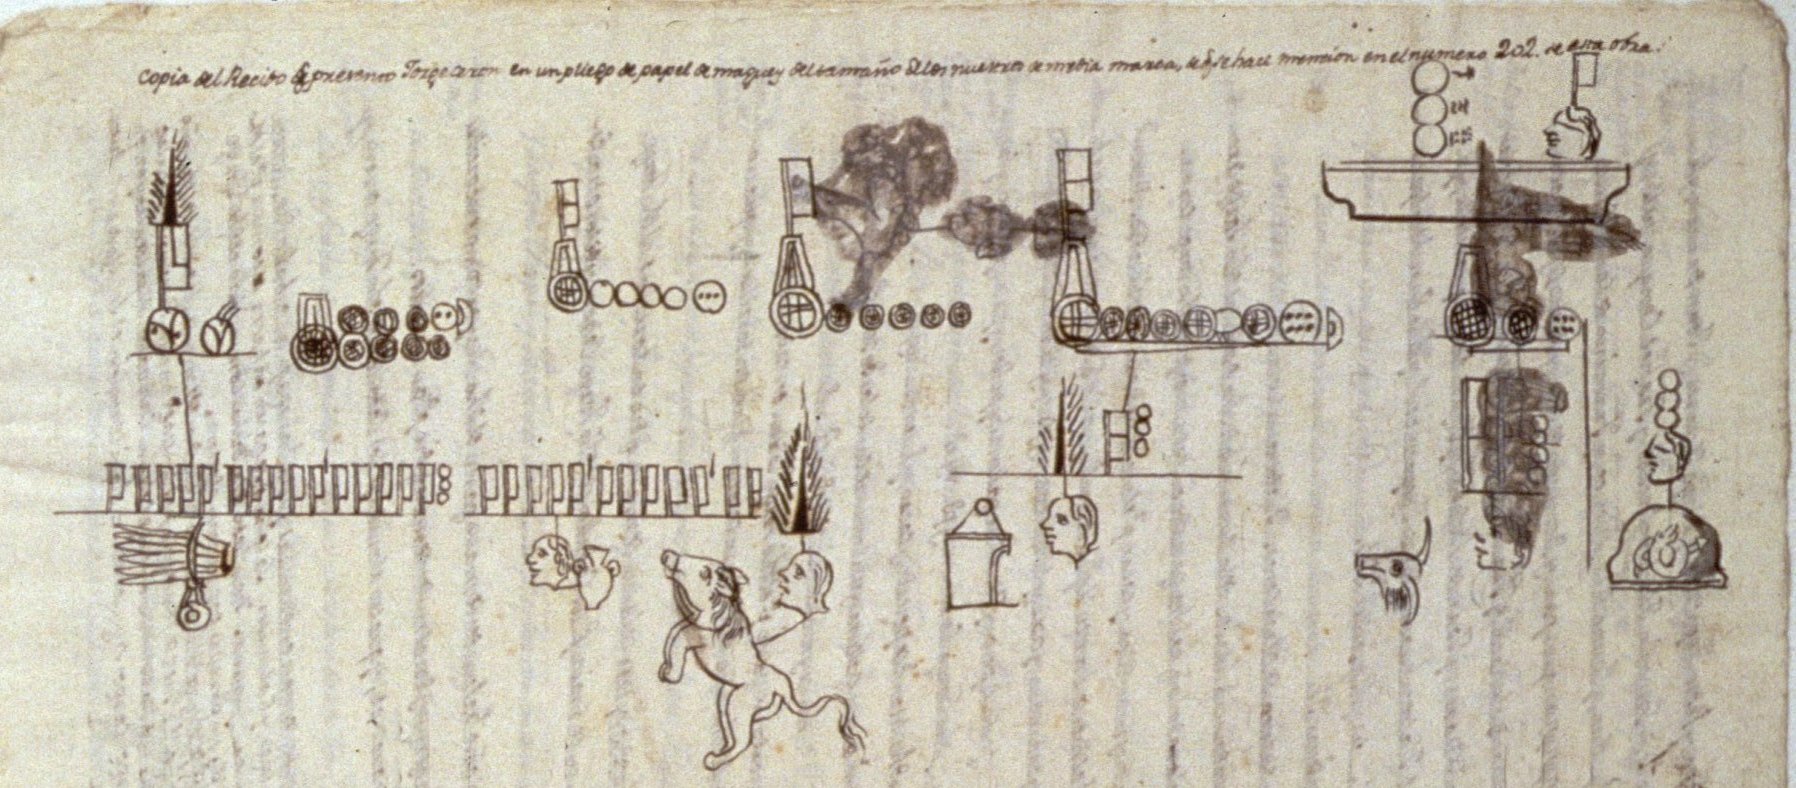 Copia del Recibo q̃ presento Jorge Ceron en un pliego de papel de maguey del tamaño de los nuestros de media marca, de q̃ se hace mencion en el numero 202. de esta obra.